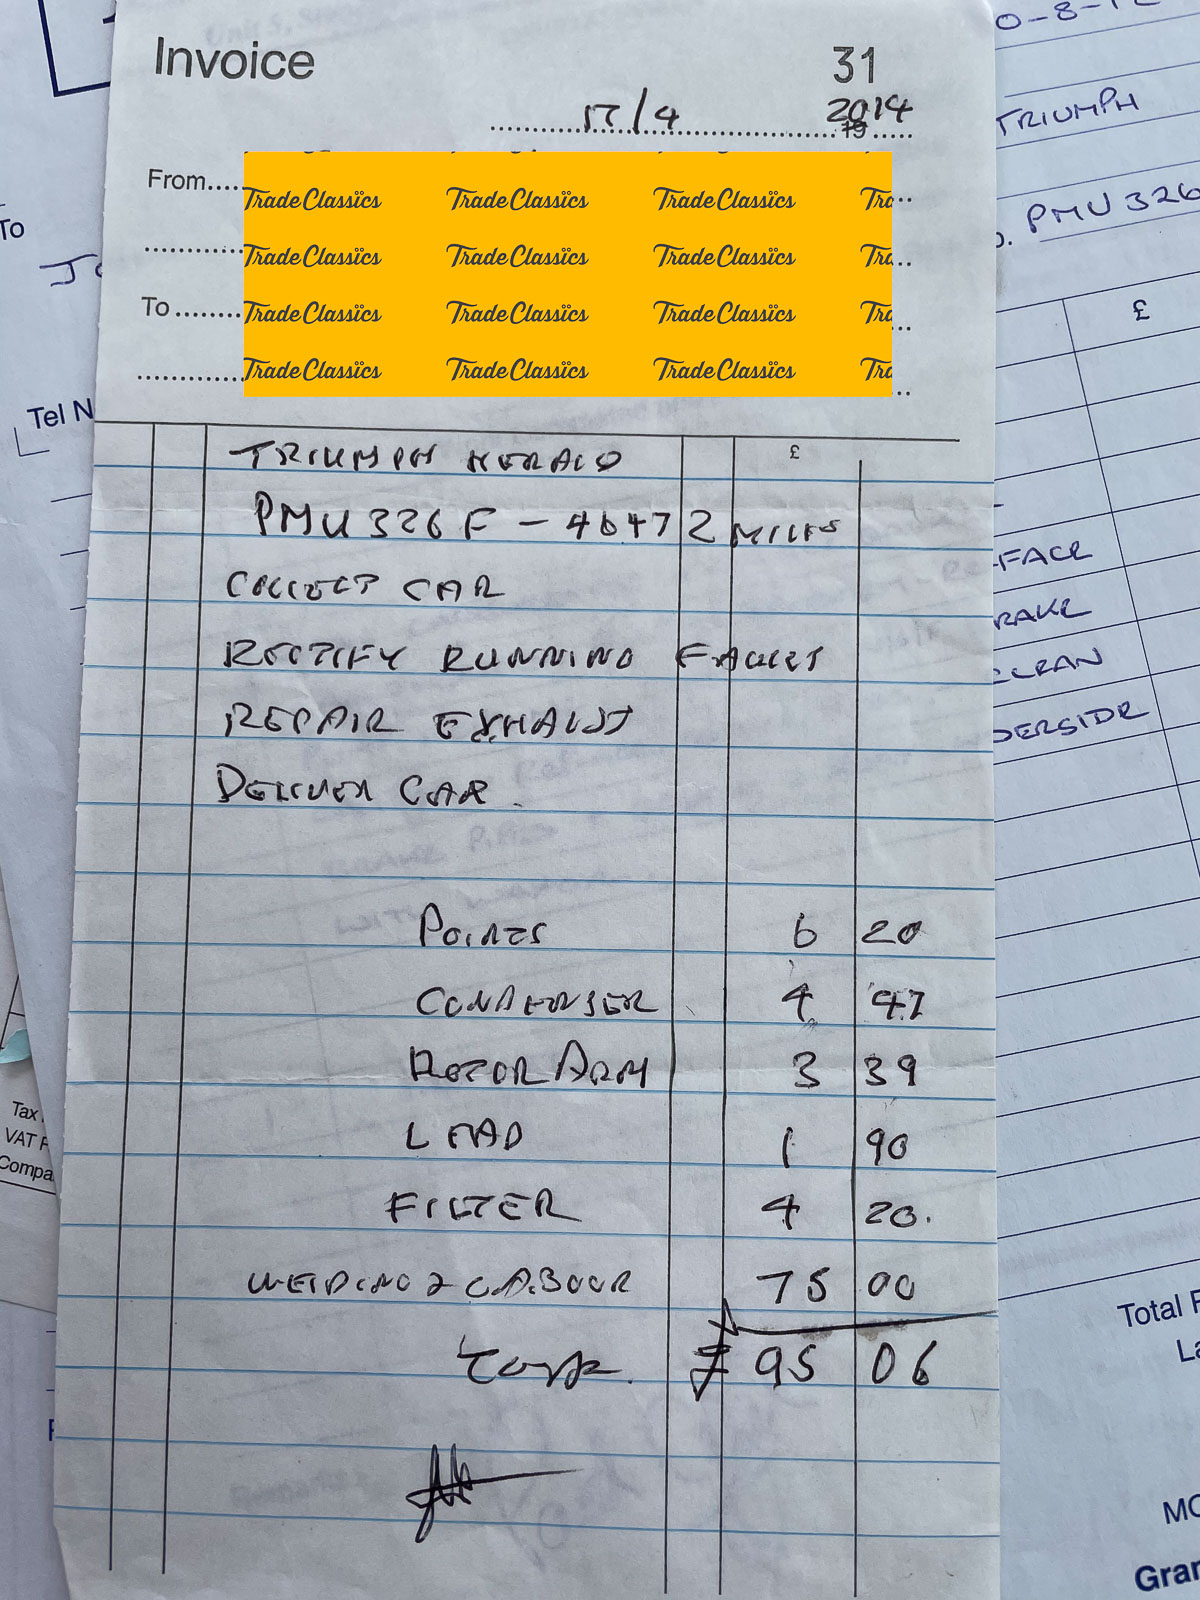 Invoice 31
17/4 2014
19
From
TradeClassics TradeClassics TradeClassics Tra
TradeClassics TradeClassics TradeClassics Tra
To
TradeClassics TradeClassics TradeClassics Tra
TradeClassics TradeClassics TradeClassics Tra
£
TRIUMPH HERALD
PMU 326 F - 46472 MILES
COLLECT CAR
RECTIFY RUNNING FAULT
REPAIR EXHAUST
DELIVER CAR.
POINTS 6 20
CONDENSER 4 47
ROTOR ARM 3 39
LEAD 1 90
FILTER 4 20.
WELDING & LABOUR 75 00
TOTAL. £ 95 06
To
Tel N
Tax
VAT
Compa
0-8-12
TRIUMPH
PMU 326
£
FACE
RAKE
CLEAN
DERSIDE
Total
La
MO
Gran